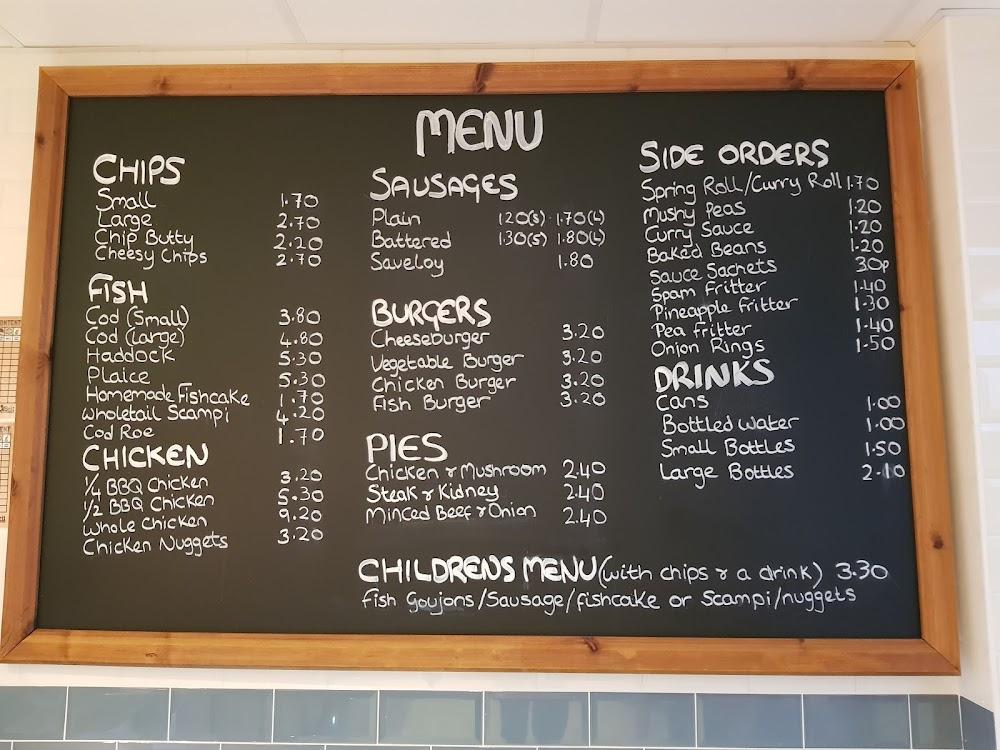 MENU
CHIPS
Small 1.70
Large 2.70
Chip Butty 2.20
Cheesy Chips 2.70
FISH
Cod (Small) 3.80
Cod (Large) 4.80
Haddock 5.30
Plaice 5.30
Homemade Fishcake 1.70
Wholetail Scampi 4.20
Cod Roe 1.70
CHICKEN
1/4 BBQ Chicken 3.20
1/2 BBQ Chicken 5.30
Whole Chicken 9.20
Chicken Nuggets 3.20
SAUSAGES
Plain 1.20(s) 1.70(L)
Battered 1.30(s) 1.80(L)
Saveloy 1.80
BURGERS
Cheeseburger 3.20
Vegetable Burger 3.20
Chicken Burger 3.20
Fish Burger 3.20
PIES
Chicken & Mushroom 2.40
Steak & Kidney 2.40
Minced Beef & Onion 2.40
SIDE ORDERS
Spring Roll/Curry Roll 1.70
Mushy Peas 1.20
Curry Sauce 1.20
Baked Beans 1.20
Sauce Sachets 30p
Spam Fritter 1.40
Pineapple Fritter 1.30
Pea Fritter 1.40
Onion Rings 1.50
DRINKS
Cans 1.00
Bottled Water 1.00
Small Bottles 1.50
Large Bottles 2.10
CHILDRENS MENU (with chips & a drink) 3.30
Fish Goujons/Sausage/fishcake or Scampi/nuggets